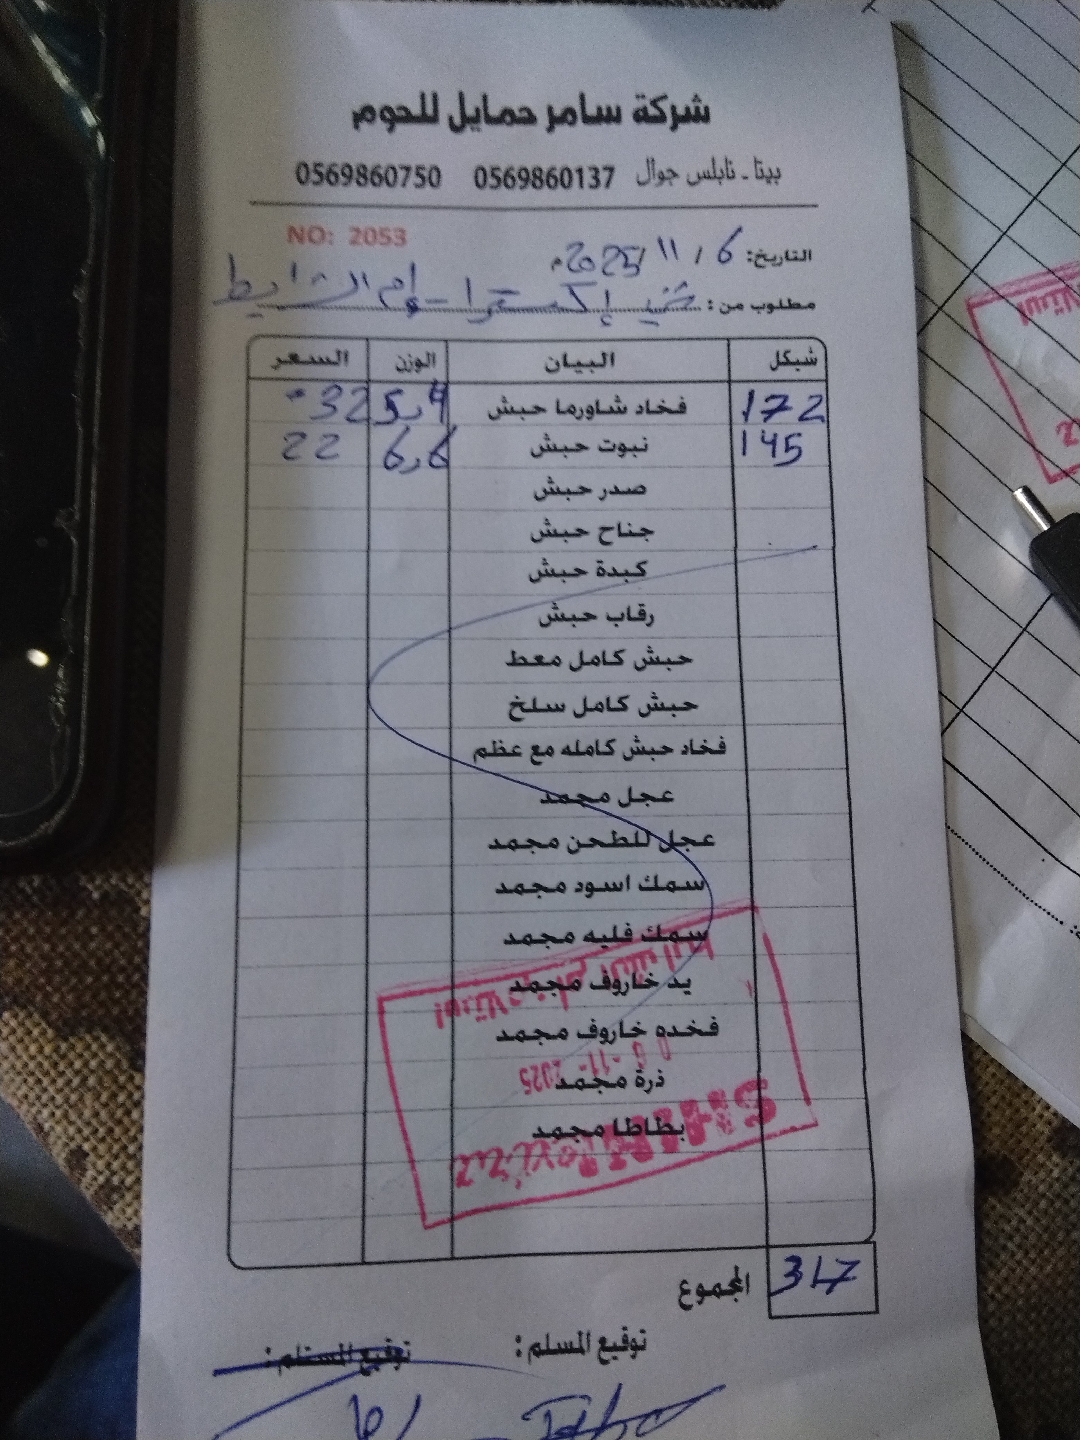 شركة سامر حمايل للحوم
بيتا - نابلس جوال 0569860137 0569860750
NO: 2053
التاريخ: 6 / 11 / 2025م
مطلوب من : إكسترا - إم الشرايط
شيكل البيان الوزن السعر
172 فخاد شاورما حبش 5,4 32
145 نبوت حبش 6,6 22
صدر حبش
جناح حبش
كبدة حبش
رقاب حبش
حبش كامل معط
حبش كامل سلخ
فخاد حبش كامله مع عظم
عجل مجمد
عجل للطحن مجمد
سمك اسود مجمد
سمك فليه مجمد
يد خاروف مجمد
فخده خاروف مجمد
ذرة مجمد
بطاطا مجمد
المجموع 317
توقيع المسلم :
توقيع الستلم :
استلام
-11- 2025